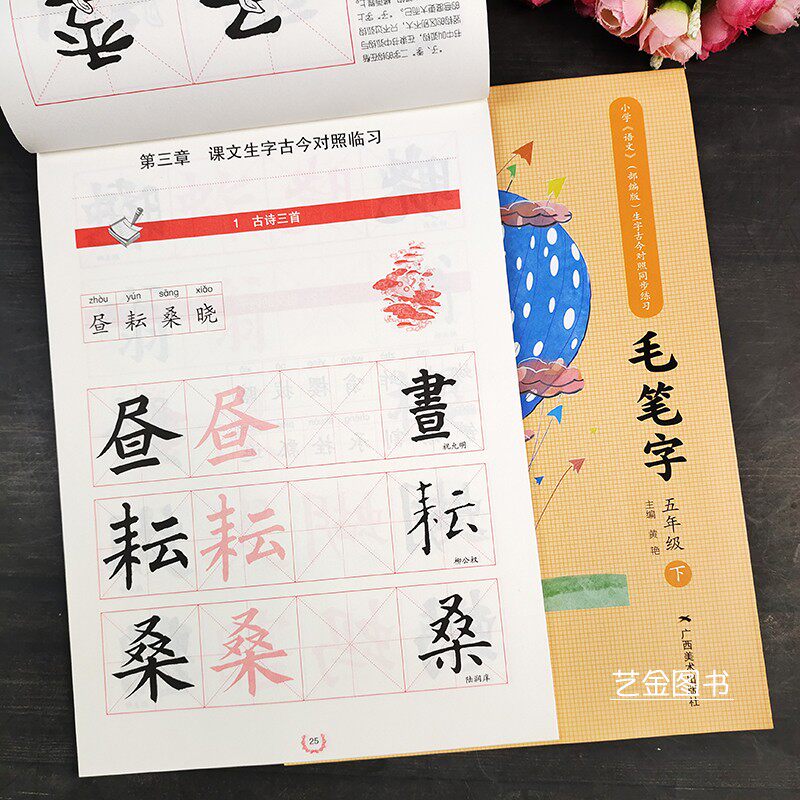 第三章 课文生字古今对照临习
1 古诗三首
zhòu yún sāng xiǎo
昼 耘 桑 晓
昼 昼 晝
祝允明
耘 耘 耘
柳公权
桑 桑 桑
陆润庠
25
小学《语文》(部编版)生字古今对照同步练习
毛笔字
五年级
下
主编 黄艳
广西美术出版社
艺金图书